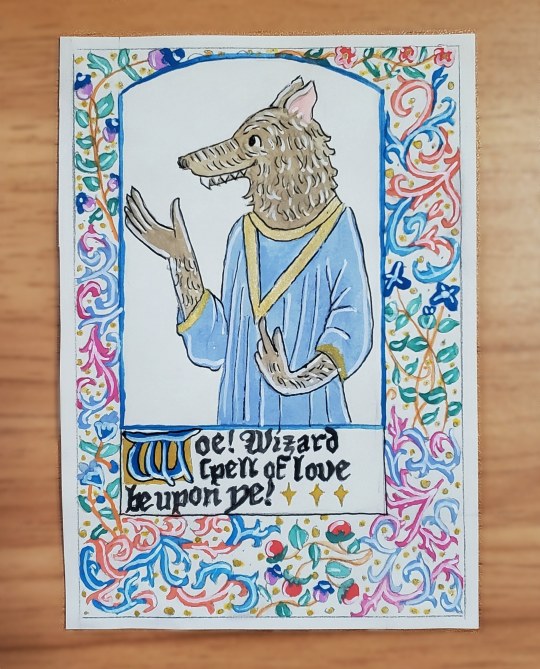 Woe! Wizard
Spell of love
be upon ye!